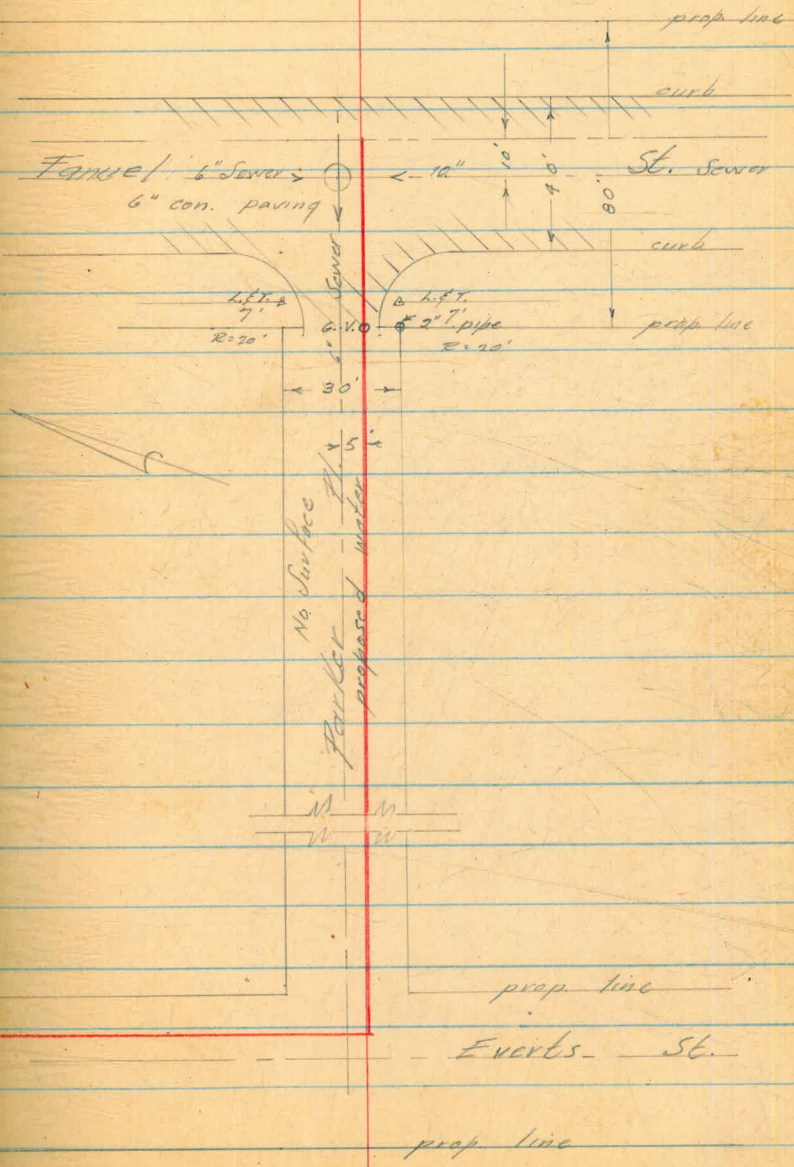 prop. line
curb
Fanuel 6" Sewer 10" St. Sewer
10'
40'
80'
6" con. paving
curb
L.&T.
7'
R=20'
6" Sewer
G.V.
L.&T.
7'
2" pipe
R=20'
prop line
30'
5'
No Surface
Parker Pl.
proposed water
prop. line
Everts St.
prop line